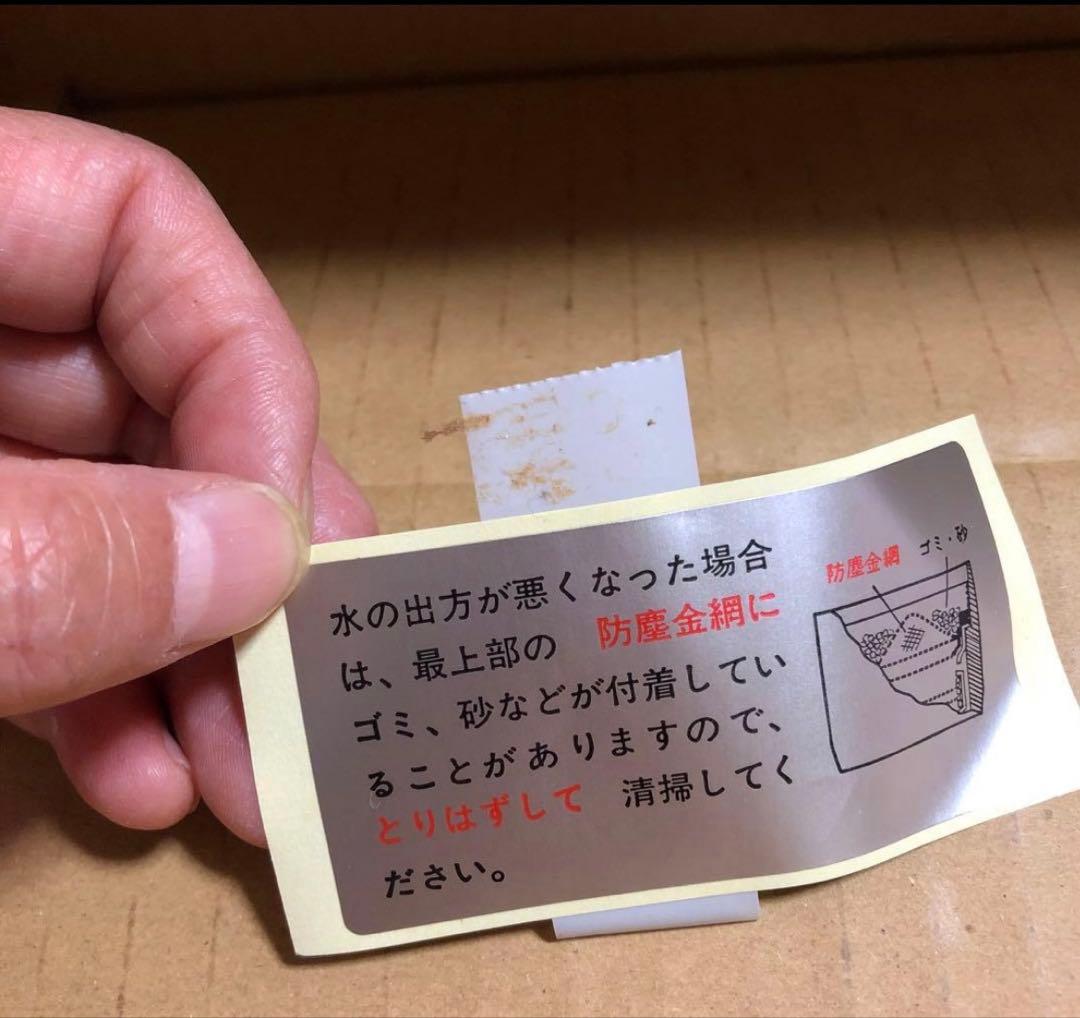 水の出方が悪くなった場合
は、最上部の 防塵金網に
ゴミ、砂などが付着してい
ることがありますので、
とりはずして 清掃してく
ださい。
防塵金網
ゴミ・砂